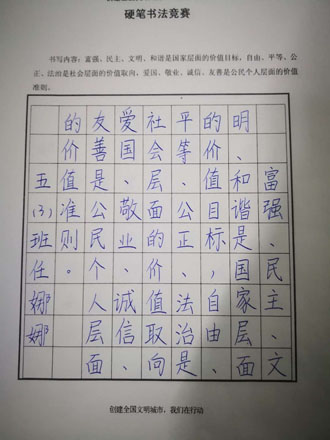 硬笔书法竞赛
书写内容：富强、民主、文明、和谐是国家层面的价值目标，自由、平等、公
正、法治是社会层面的价值取向，爱国、敬业、诚信、友善是公民个人层面的价值
准则。
富强、民主、文
明、和谐是国家层面
的价值目标，自由、
平等、公正、法治是
社会层面的价值取向
爱国、敬业、诚信、
友善是公民个人层面
的价值准则。
五(3)班任娜娜
创建全国文明城市，我们在行动